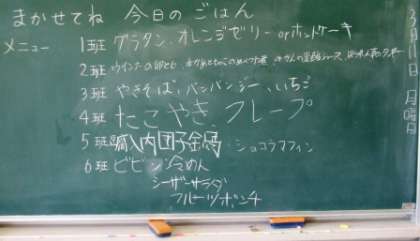 まかせてね 今日のごはん
メニュー 1班 グラタン、オレンジゼリー orホットケーキ
2班
3班 やきそば、バンバンジー、いちご
4班 たこやき、クレープ
5班 肉団子鍋・ショコラマフィン
6班 ビビン冷めん
シーザーサラダ
フルーツポンチ
月 日 月曜日